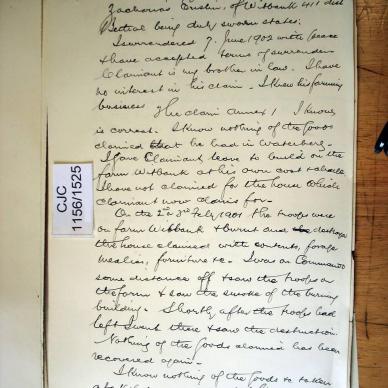 Zacharias Erasmus, of Witbank 411 dist
Bethal being duly sworn states:
I surrendered 7. June 1902 with peace
& have accepted terms of surrender
Claimant is my brother in law. I have
no interest in his claim. I knew his farming
business. The claim Annex 1 I know
is correct. I know nothing of the goods
claimed that he had in Waterberg.
I gave Claimant leave to build on the
farm Witbank at his own cost &
I have not claimed for the house which
Claimant now claims for.
On the 2d & 3d Feby 1901 the troops were
on farm Witbank & burnt and destroyed
the house claimed with contents, forage
mealies, furniture &c. I was on Commando
some distance off & saw the troops on
the farm & saw the smoke of the burning
building. Shortly after the troops had
left I went there & saw the destruction.
Nothing of the goods claimed has been
recovered again.
I know nothing of the goods taken
CJC
1156/1525